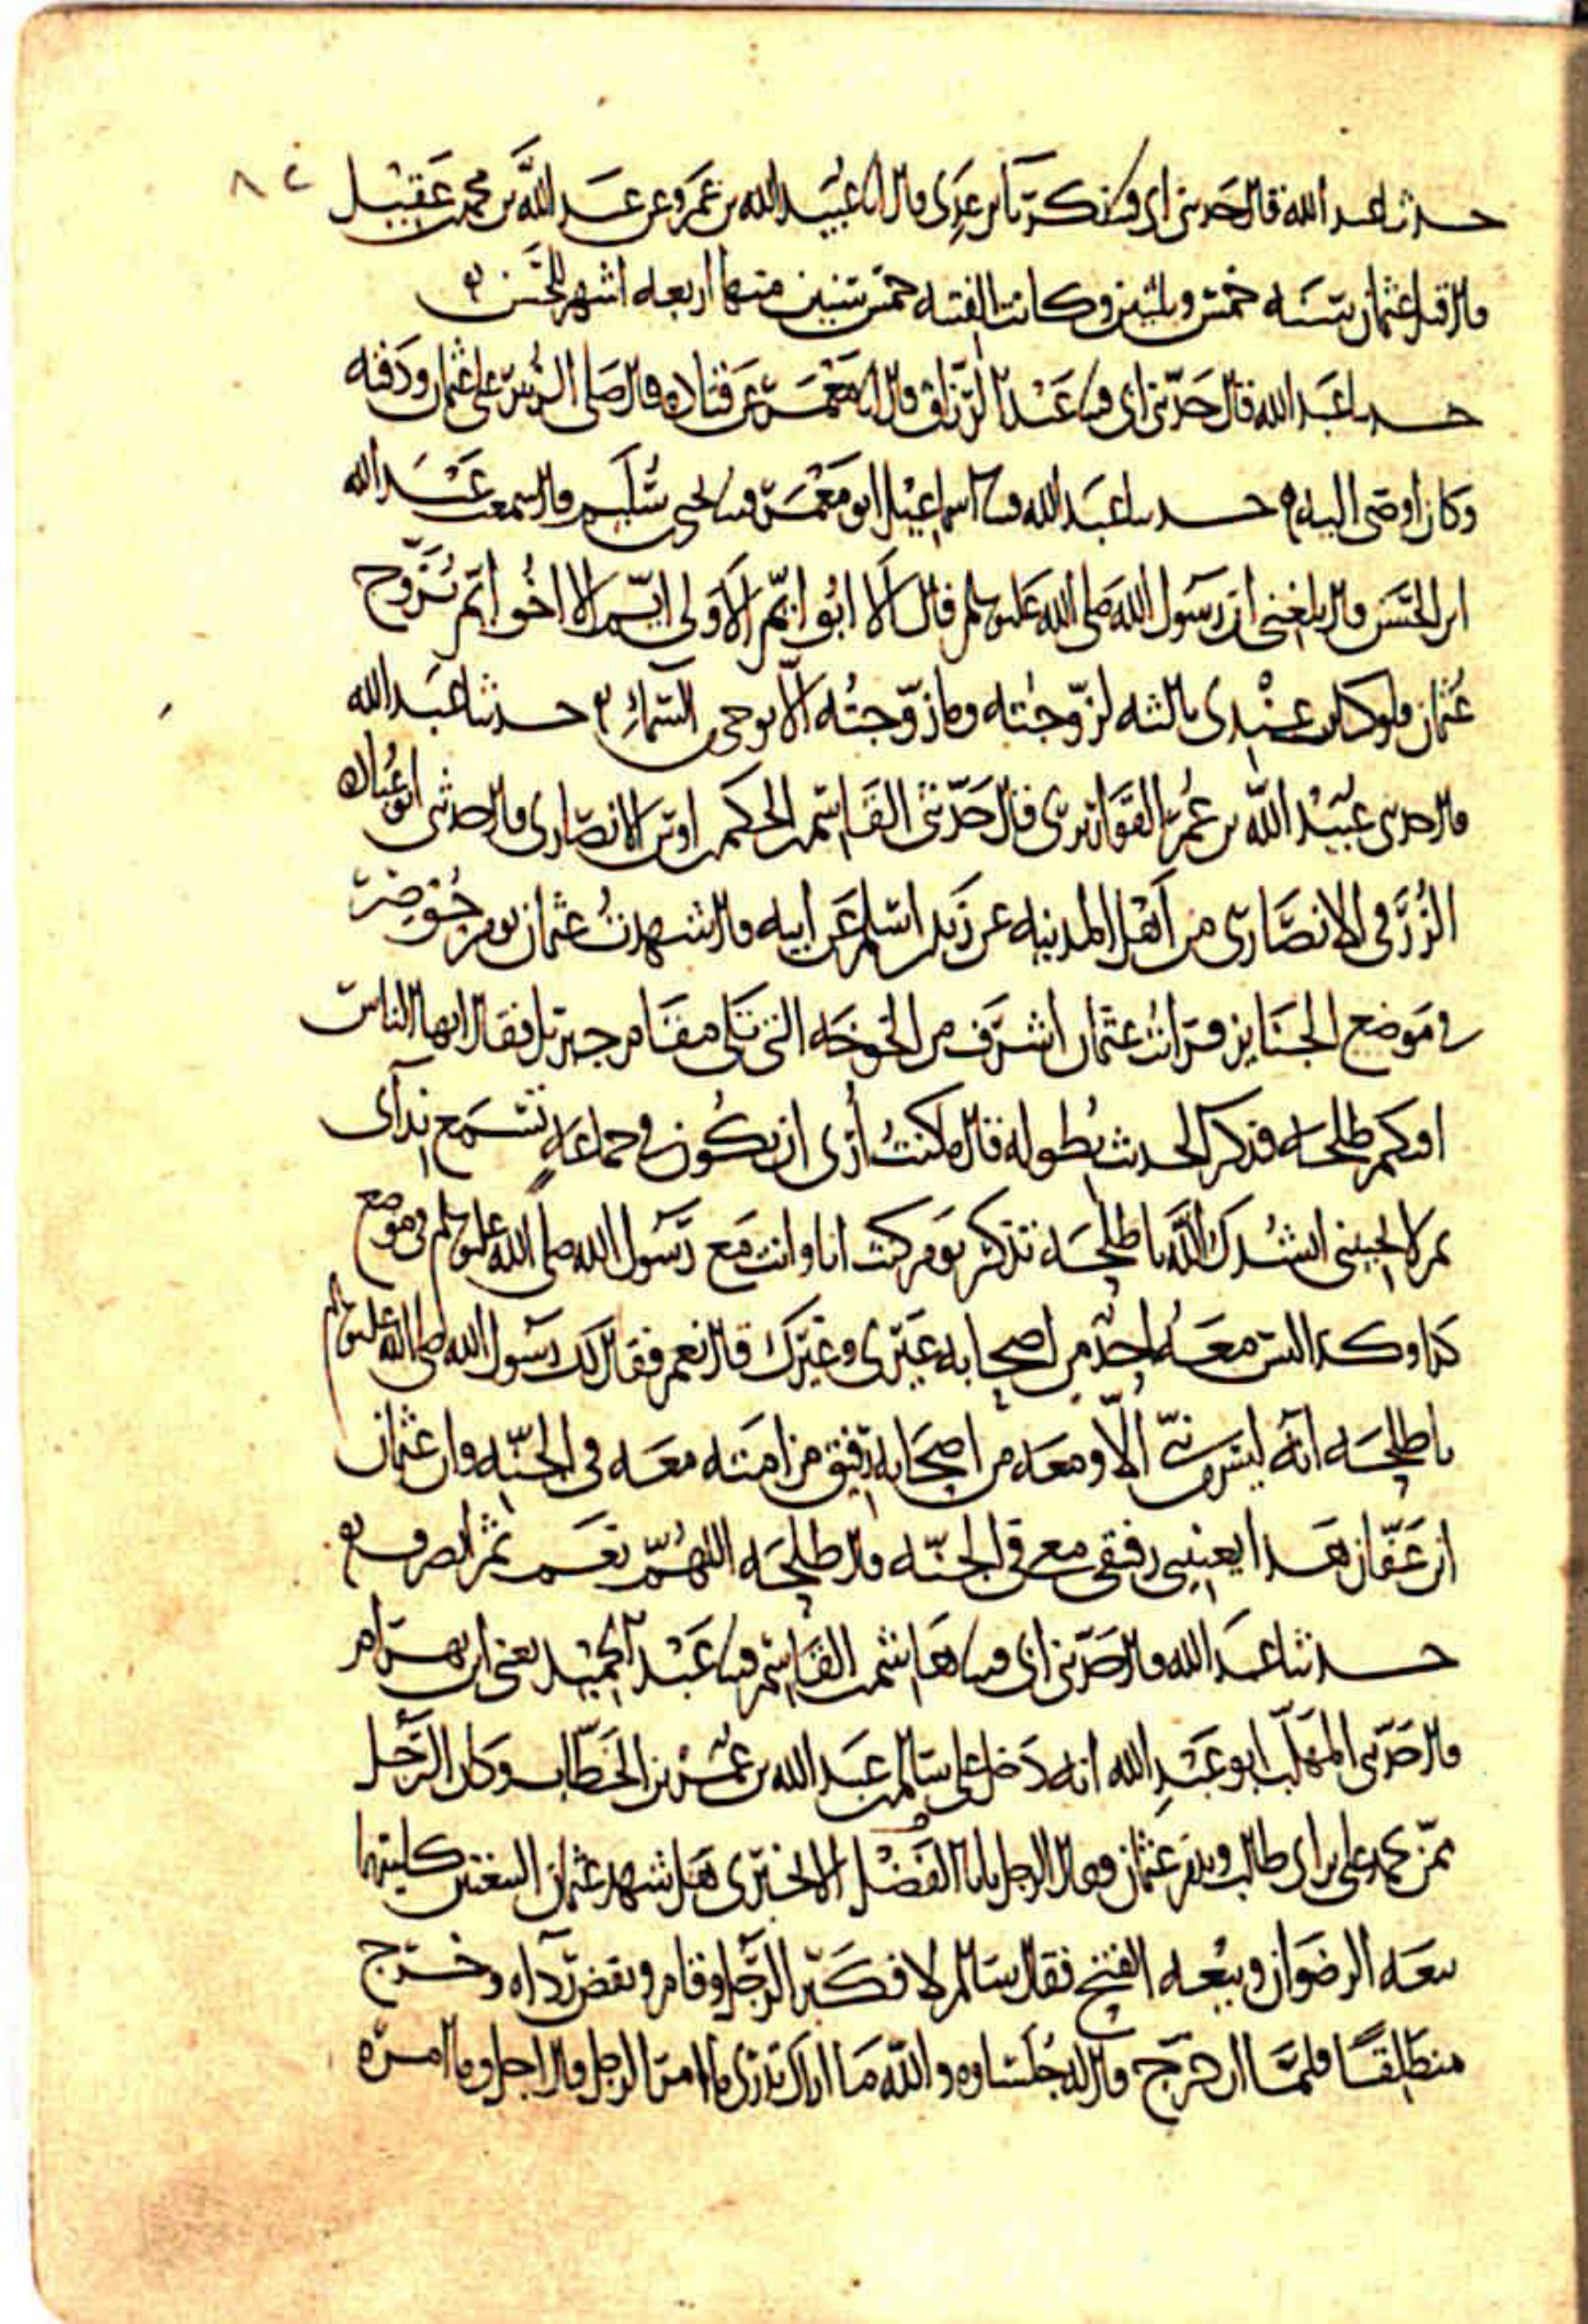 حدثنا عبد الله قال حدثني ابي قثنا زكريا بن عدي قال انا عبيد الله بن عمرو عن عبد الله بن محمد بن عقيل
قال قتل عثمان سنه خمس وثلثين وكانت الفتنه خمس سنين منها اربعه اشهر للحسن
حدثنا عبد الله قال حدثني ابي قثنا عبد الرزاق قال انا معمر عن قتاده قال صلى الزبير على عثمان ودفنه
وكان اوصى اليه حدثنا عبد الله قثنا اسماعيل ابو معمر قثنا يحيى بن سليم قال سمعت عبد الله
ابن الحسن قال بلغني ان رسول الله صلى الله عليه وسلم قال الا ابو ايم الا ولي ايم الا اخو ايم تزوج
عثمان فلو كان عندي ثالثه لزوجته وما زوجته الا بوحي السماء حدثنا عبد الله
قال حدثني عبيد الله بن عمر القواريري قال حدثني القاسم بن الحكم بن اوس الانصاري قال حدثني ابو عباده
الزرقي الانصاري من اهل المدينه عن زيد بن اسلم عن ابيه قال شهدت عثمان يوم حوصر
في موضع الجنايز فرايت عثمان اشرف من الخوخه التي تلي مقام جبريل فقال ايها الناس
افيكم طلحه فذكر الحديث بطوله قال ما كنت أرى ان تكون في جماعه تسمع ندآى
ثم لا تجيبني انشدك الله يا طلحه تذكر يوم كنت انا وانت مع رسول الله صلى الله عليه وسلم في موضع
كذا وكذا ليس معه احد من اصحابه غيري وغيرك قال نعم فقال لك رسول الله صلى الله عليه وسلم
يا طلحه انه ليس من نبي الا ومعه من اصحابه رفيق من امته معه في الجنه وان عثمان
ابن عفان هذا يعنيني رفيقي معي في الجنه قال طلحه اللهم نعم ثم انصرف
حدثنا عبد الله قال حدثني ابي قثنا هاشم بن القاسم قثنا عبد الحميد يعني ابن بهرام
قال حدثني المهلب ابو عبد الله انه دخل على سالم بن عبد الله بن عمر بن الخطاب وكان الرجل
ممن يحمد علي بن ابي طالب ويذم عثمان فقال الرجل يا با الفضل الا تخبرني هل شهد عثمان البيعتين كلتيهما
بيعه الرضوان وبيعه الفتح فقال سالم لا فكبر الرجل وقام ونفض رداه وخرج
منطلقا فلما ان خرج قال له جلساوه والله ما اراك تدري ما امر الرجل قال اجل وما امره